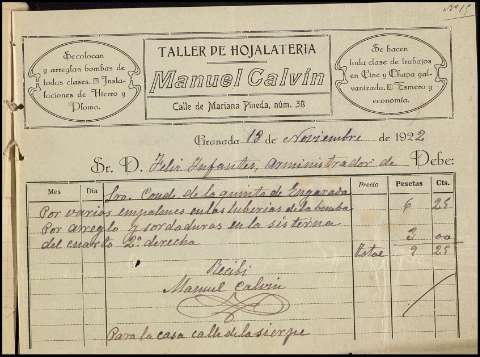 Nº 15
Se colocan
y arreglan bombas de
todas clases. Insta-
laciones de Hierro y
Plomo.
TALLER DE HOJALATERIA
Manuel Calvin
Calle de Mariana Pineda, núm. 38
Se hacen
toda clase de trabajos
en Cinc y Chapa gal-
vanizada. Esmero y
economía.
Granada 13 de Noviembre de 1922
Sr. D. Felix Infantes, Administrador de Debe:
Mes Día Precio Pesetas Cts.
Sro. Conde de la quinta de
Por varios empalmes en las tuberias de la bomba 6 25
Por arreglo y sordaduras en la sisterna
del cuarto 2º derecha 3 00
Total 9 25
Recibi
Manuel Calvin
Para la casa calle de la sierpe